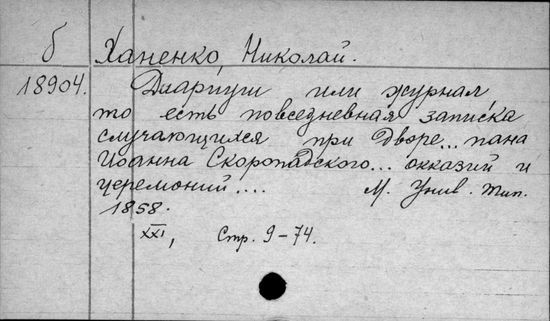 б Ханенко, Николай.
18904. Диариуш или журнал
то есть повседневная записка
случающихся при Дворе... пана
Иоанна Скоропадского... окказий и
церемоний.... М. Унив. тип.
1858.
XXI, Стр. 9-74.